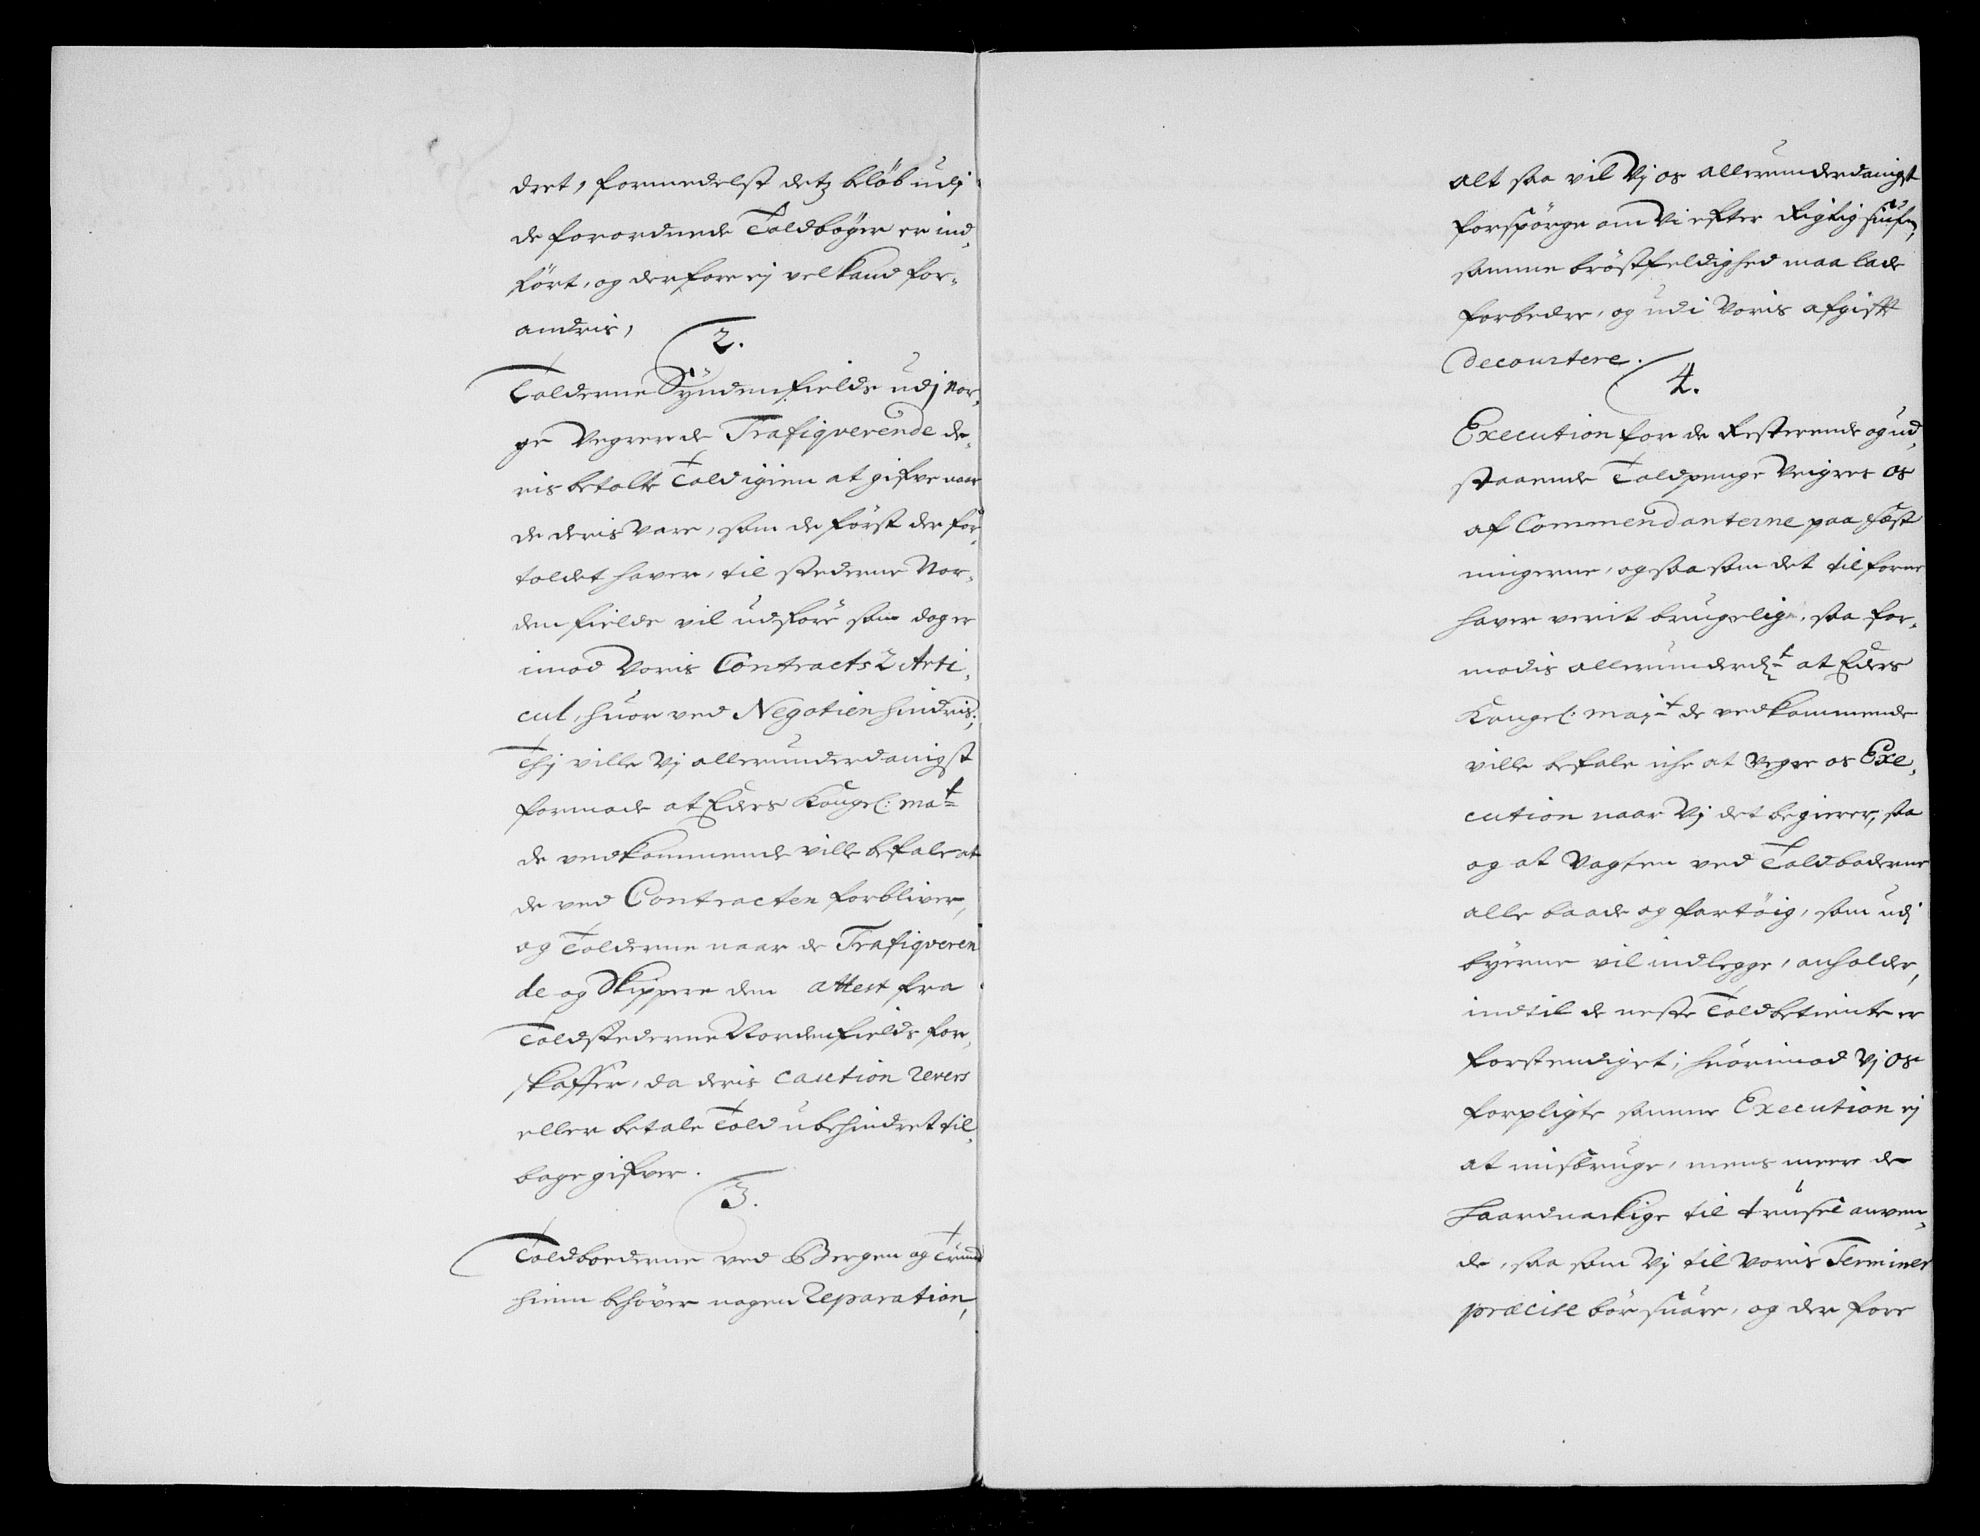 dret, formedelst detz beløb udj
de forordnede Toldbøger er ind-
ført, og derfore ej vel kand for-
andris,
2.
Tolderne Syndenfields udj Nor-
ge Vegrer de Trafiqverende de-
ris betalte Told igien at gifve naar
de deris Vare, som de først der for-
toldet haver, til stederne Nor-
denfields vil udføre som dog er
imod Voris Contracts 2 Arti-
cul, huor ved Negotien hindris;
Thj ville Vj allerunderdanigst
formode at Eders Kongel: Ma.t
de vedkommende ville befale at
de ved Contracten forbliver,
og Tolderne naar de Trafiqveren
de og Skippere den attest fra
Toldstederne Nordenfields for-
skaffer, da deris caution revers
eller betale Told ubehindret til-
bage gifver.
3.
Toldboederne ved Bergen og Trund
hiem behøver nogen Reparation,
alt saa vil Vj os allerunderdanigst
forspørge om Vi efter Rigtig
samme brøstfeldighed maa lade
forbedre, og udi Voris afgift
decourtere.
4.
Execution for de Resterende og ud-
staaende Toldpenge Veigres os
af Commendanterne paa Fæst
ningerne, og saa som det tilforne
haver verit brugelig, saa for-
modis allerunderd.t at Eders
Kongel: May.t de vedkommende
ville befale iche at Vegre os Exe-
cution naar Vj det begierer, saa
og at Vagten ved Toldboderne
alle baade og fartøig, som udj
byerne vil indlegge, anholder,
indtil de neste Toldbetiente er
forstendiget; huorimod Vj os
forpligte samme Execution ej
at misbruge, mens meere de
haardnackige til trusel anven-
de, saa som Vj til Voris Terminer
præcise bør suare, og der fore